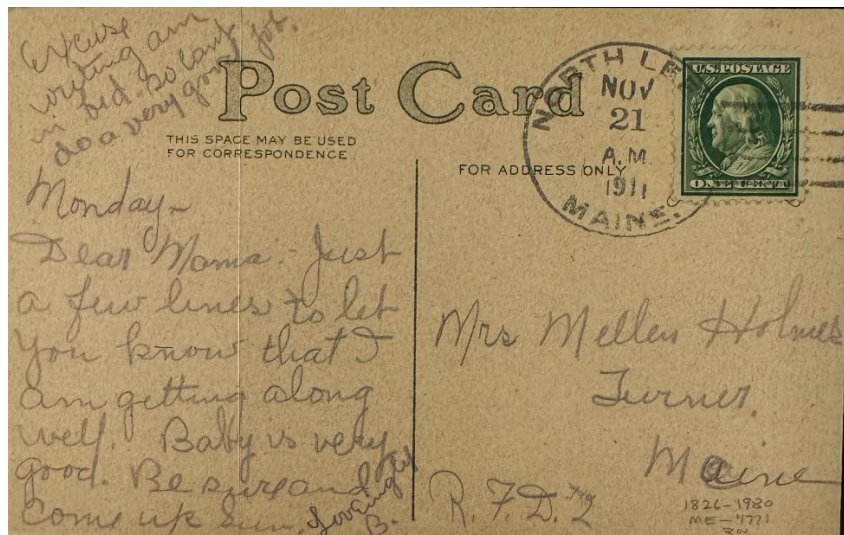 Excuse
writing am
in bed. so cant
do a very good job.
Post Card
THIS SPACE MAY BE USED
FOR CORRESPONDENCE
FOR ADDRESS ONLY
NORTH
NOV
21
A.M.
1911
MAINE.
U.S. POSTAGE
ONE CENT
Monday-
Dear Mama:- Just
a few lines to let
you know that I
am getting along
well. Baby is very
good. Be sure and
come up Sun.
Lovingly
B.
Mrs Mellen Holmes
Turner,
Maine
R. F. D. #2
1826-1980
ME-4771